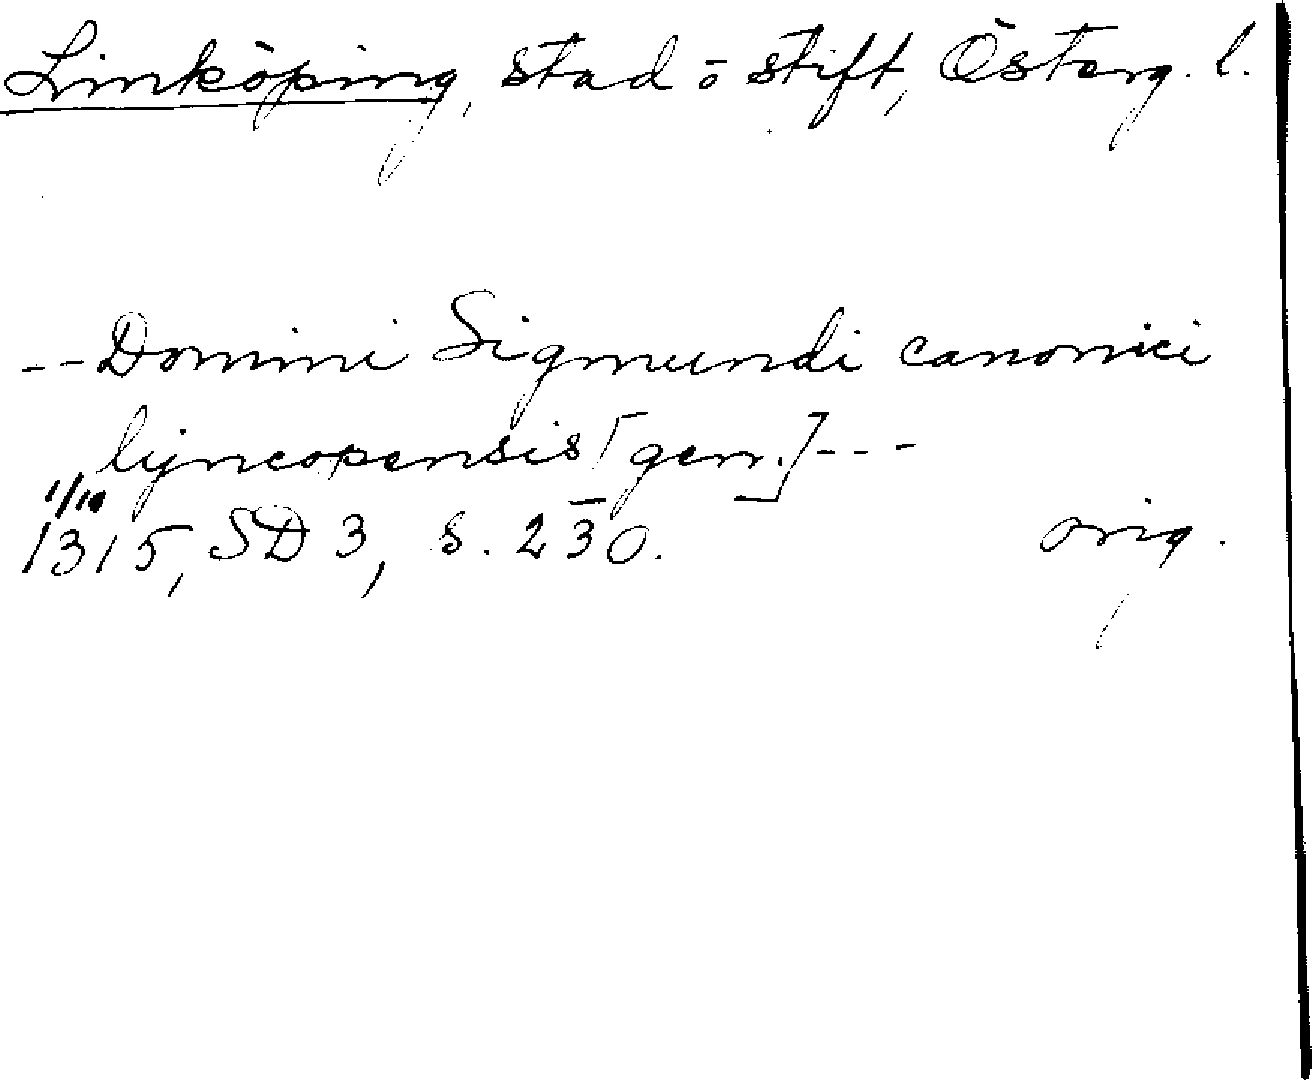 Linköping, stad o stift, Österg. l.
-- Domini Sigmundi canonici
lijncopensis [gen.] ---
1/10
1315, SD 3, s. 230. orig.